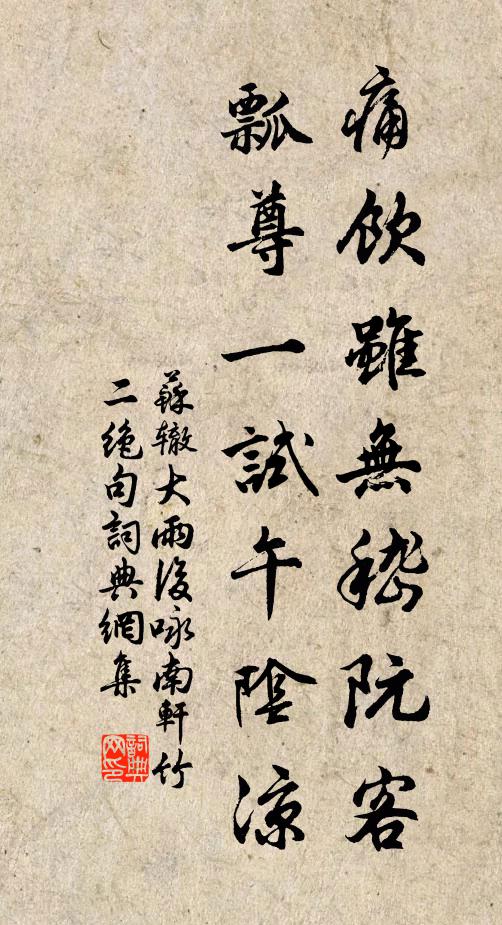 痛飲雖無嵇阮客
瓢尊一試午陰涼
蘇辙大雨後咏南軒竹
二绝句詞典網集
詞典
网印